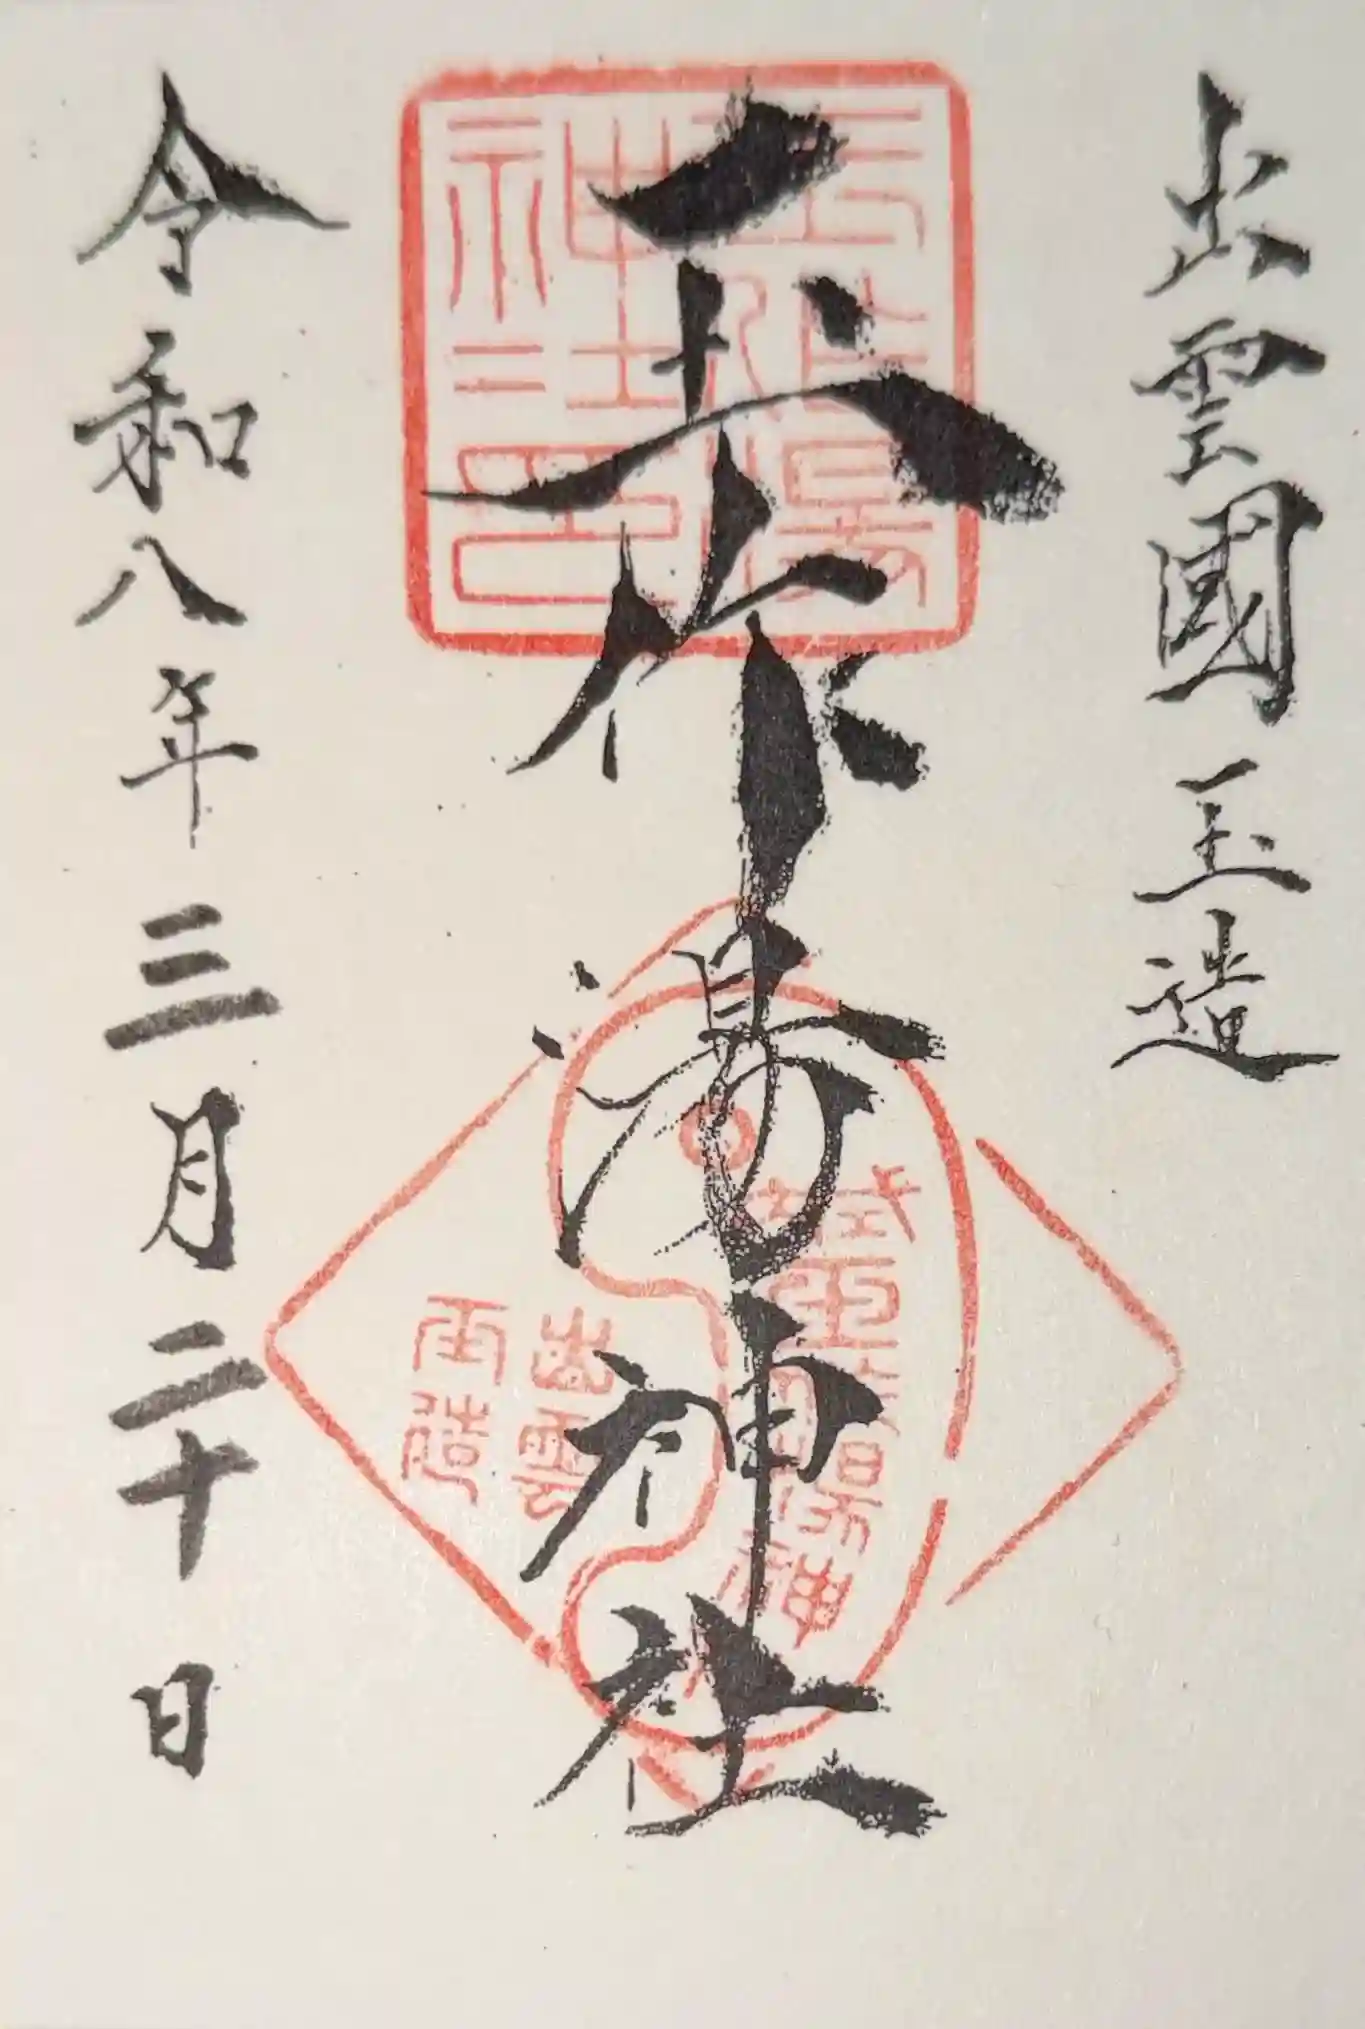 出雲國玉造
玉作湯神社
令和八年三月二十日
玉作湯
神社之印
出雲
玉造